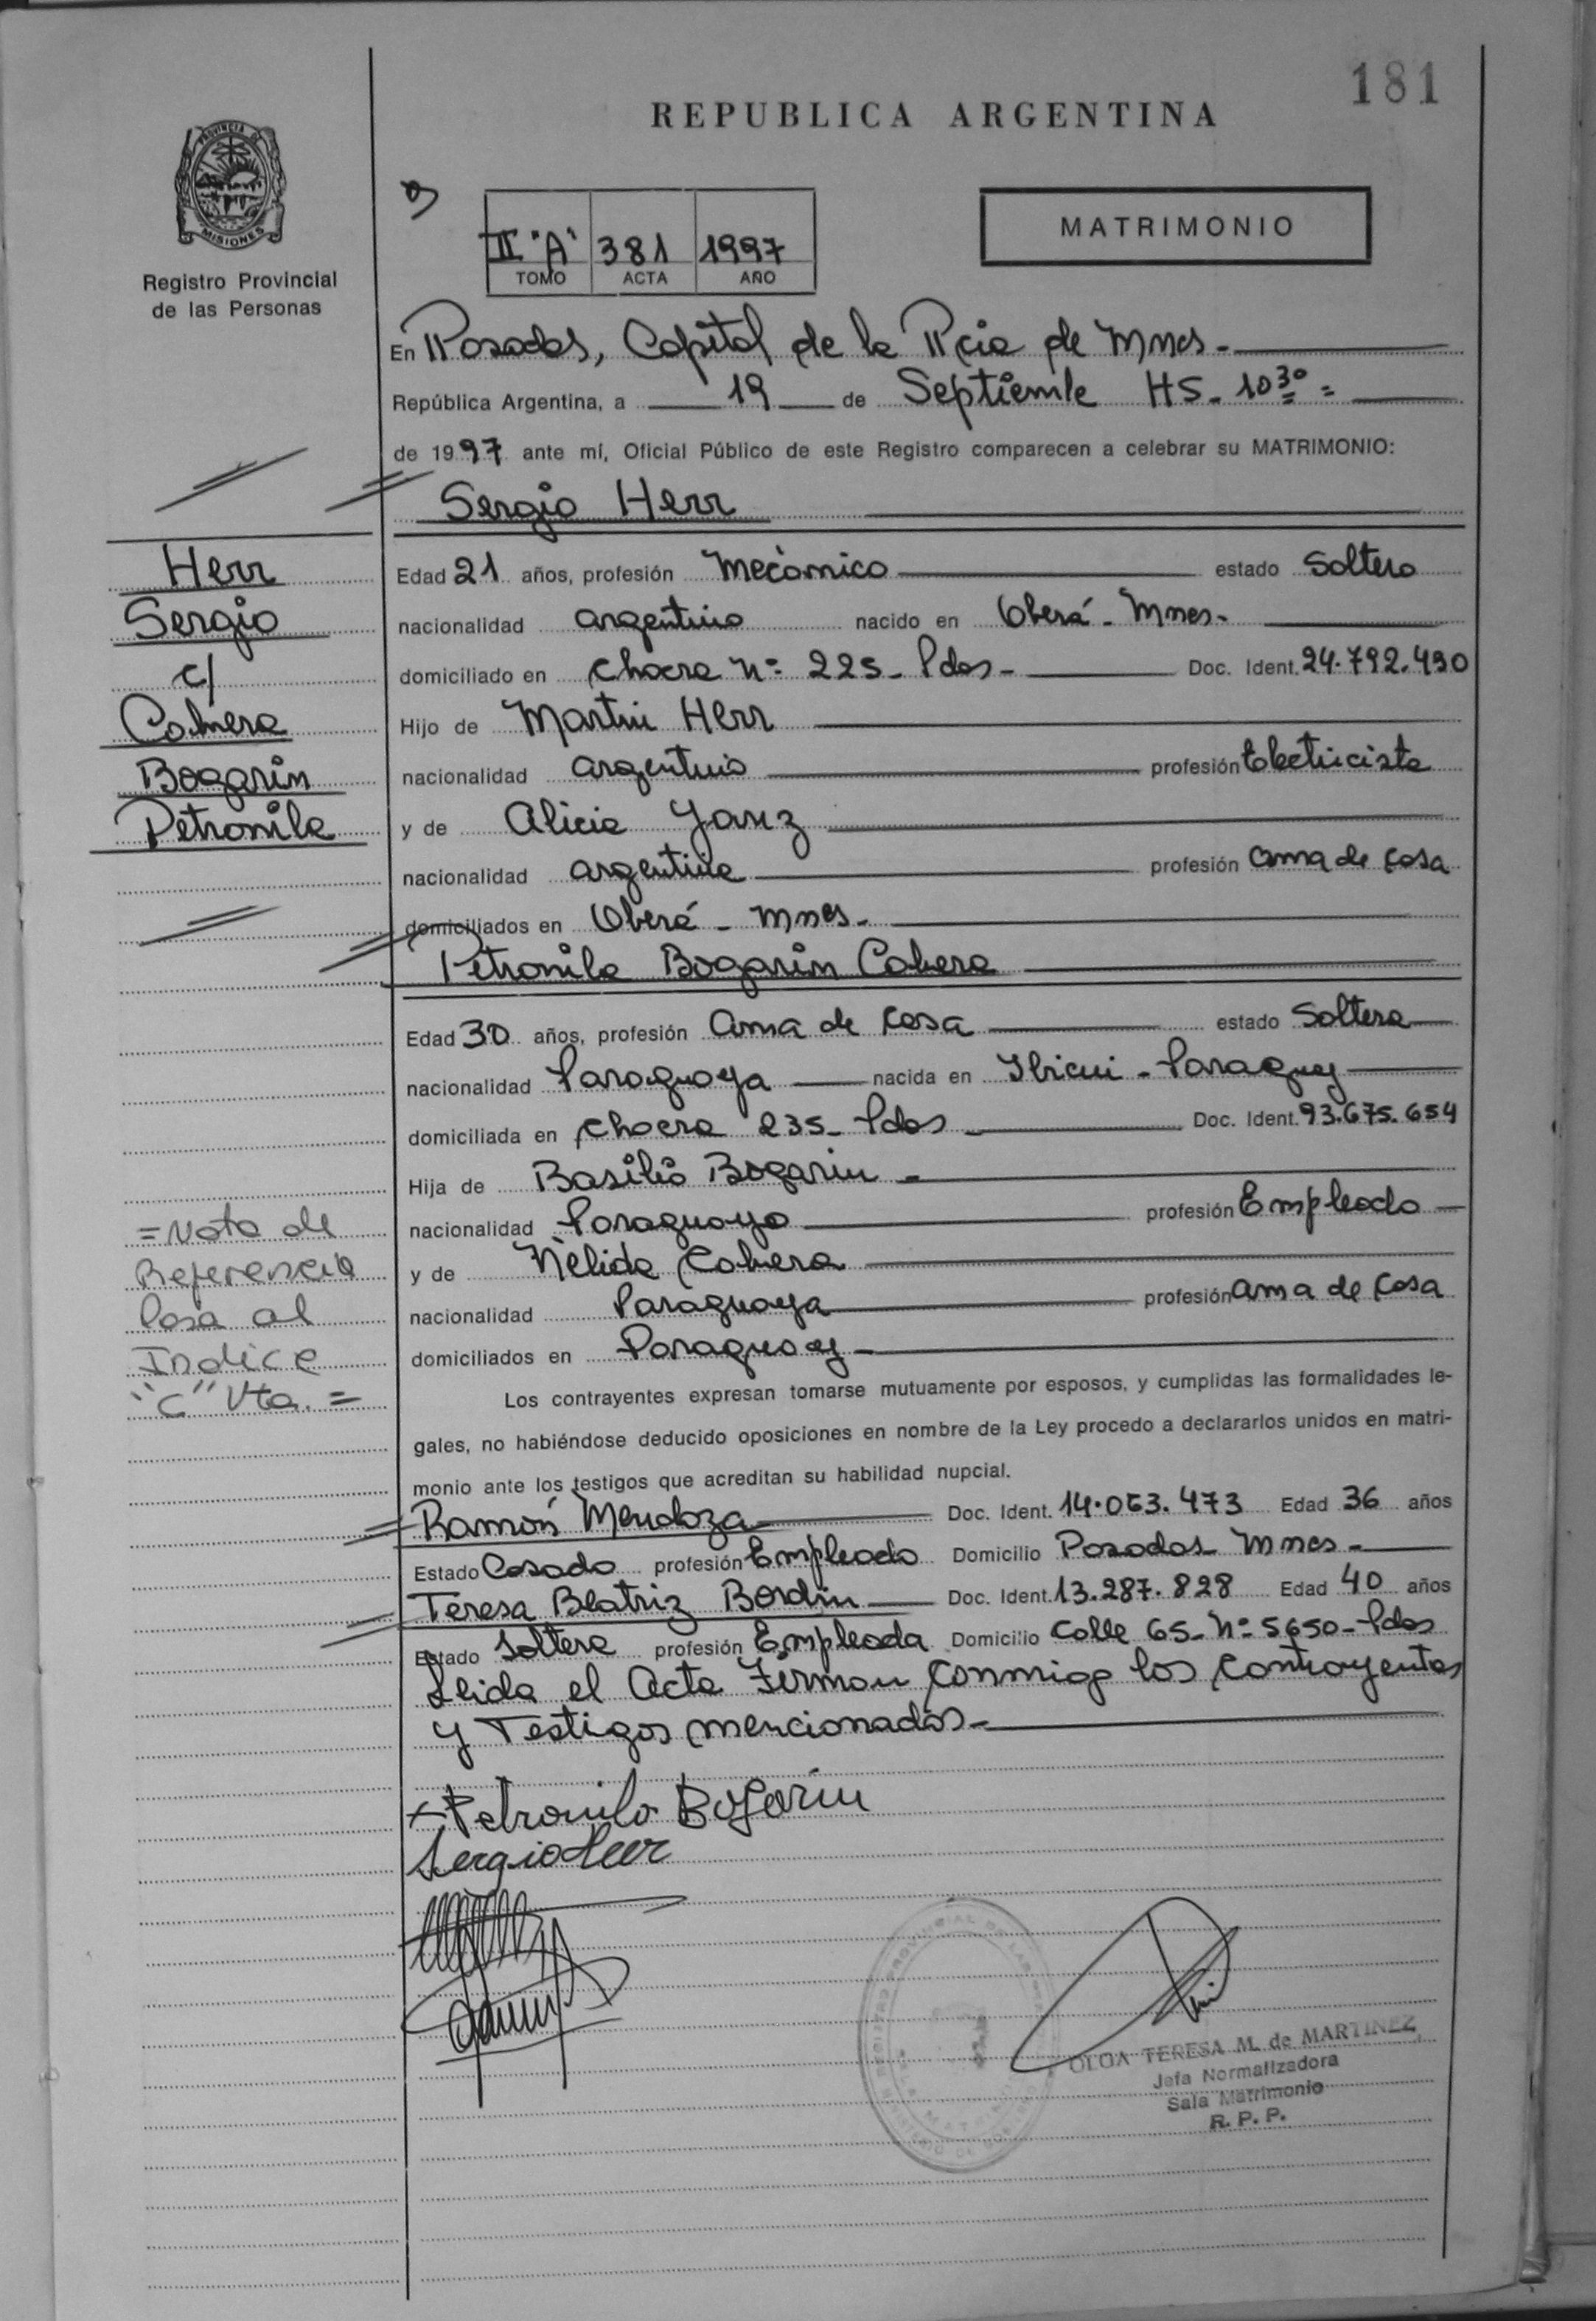 181
REPUBLICA ARGENTINA
PROVINCIA DE
MISIONES
Registro Provincial
de las Personas
II "A" 381 1997
TOMO ACTA AÑO
MATRIMONIO
En Posadas, Capital de la Pcia de Mnes.-
República Argentina, a 19 de Septiembre HS. 10 30 =
de 1997 ante mí, Oficial Público de este Registro comparecen a celebrar su MATRIMONIO:
Sergio Herr
Edad 21 años, profesión Mecánico estado Soltero
nacionalidad argentino nacido en Oberá - Mnes-
domiciliado en Chacra Nº 225 - Pdas - Doc. Ident. 24.792.490
Hijo de Martin Herr
nacionalidad argentino profesión Electricista
y de Alicia
nacionalidad argentina profesión ama de casa
domiciliados en Oberá - Mnes-
Petronila Bogarin Cabrera
Edad 30 años, profesión ama de casa estado Soltera
nacionalidad Paraguaya nacida en Ibicui - Paraguay
domiciliada en Chacra 235 - Pdas - Doc. Ident. 93.675.654
Hija de Basilio Bogarin -
nacionalidad Paraguayo profesión Empleado
y de Nélida Cabrera
nacionalidad Paraguaya profesión ama de casa
domiciliados en Paraguay -
Los contrayentes expresan tomarse mutuamente por esposos, y cumplidas las formalidades le-
gales, no habiéndose deducido oposiciones en nombre de la Ley procedo a declararlos unidos en matri-
monio ante los testigos que acreditan su habilidad nupcial.
Ramón Mendoza Doc. Ident. 14.053.473 Edad 36 años
Estado Casado profesión Empleado Domicilio Posadas Mnes -
Teresa Beatriz Bordin Doc. Ident. 13.287.828 Edad 40 años
Estado Soltera profesión Empleada Domicilio Calle 65 - Nº 5650 - Pdas
Leida el Acta Firman conmigo los contrayentes
y Testigos mencionados -
Petronila Bogarin
Sergio Herr
OLGA TERESA M. de MARTINEZ
Jefa Normalizadora
Sala Matrimonio
R. P. P.
Herr
Sergio
c/
Cabrera
Bogarin
Petronila
= Nota de
Referencia
Pasa al
Indice
"C" Vta. =